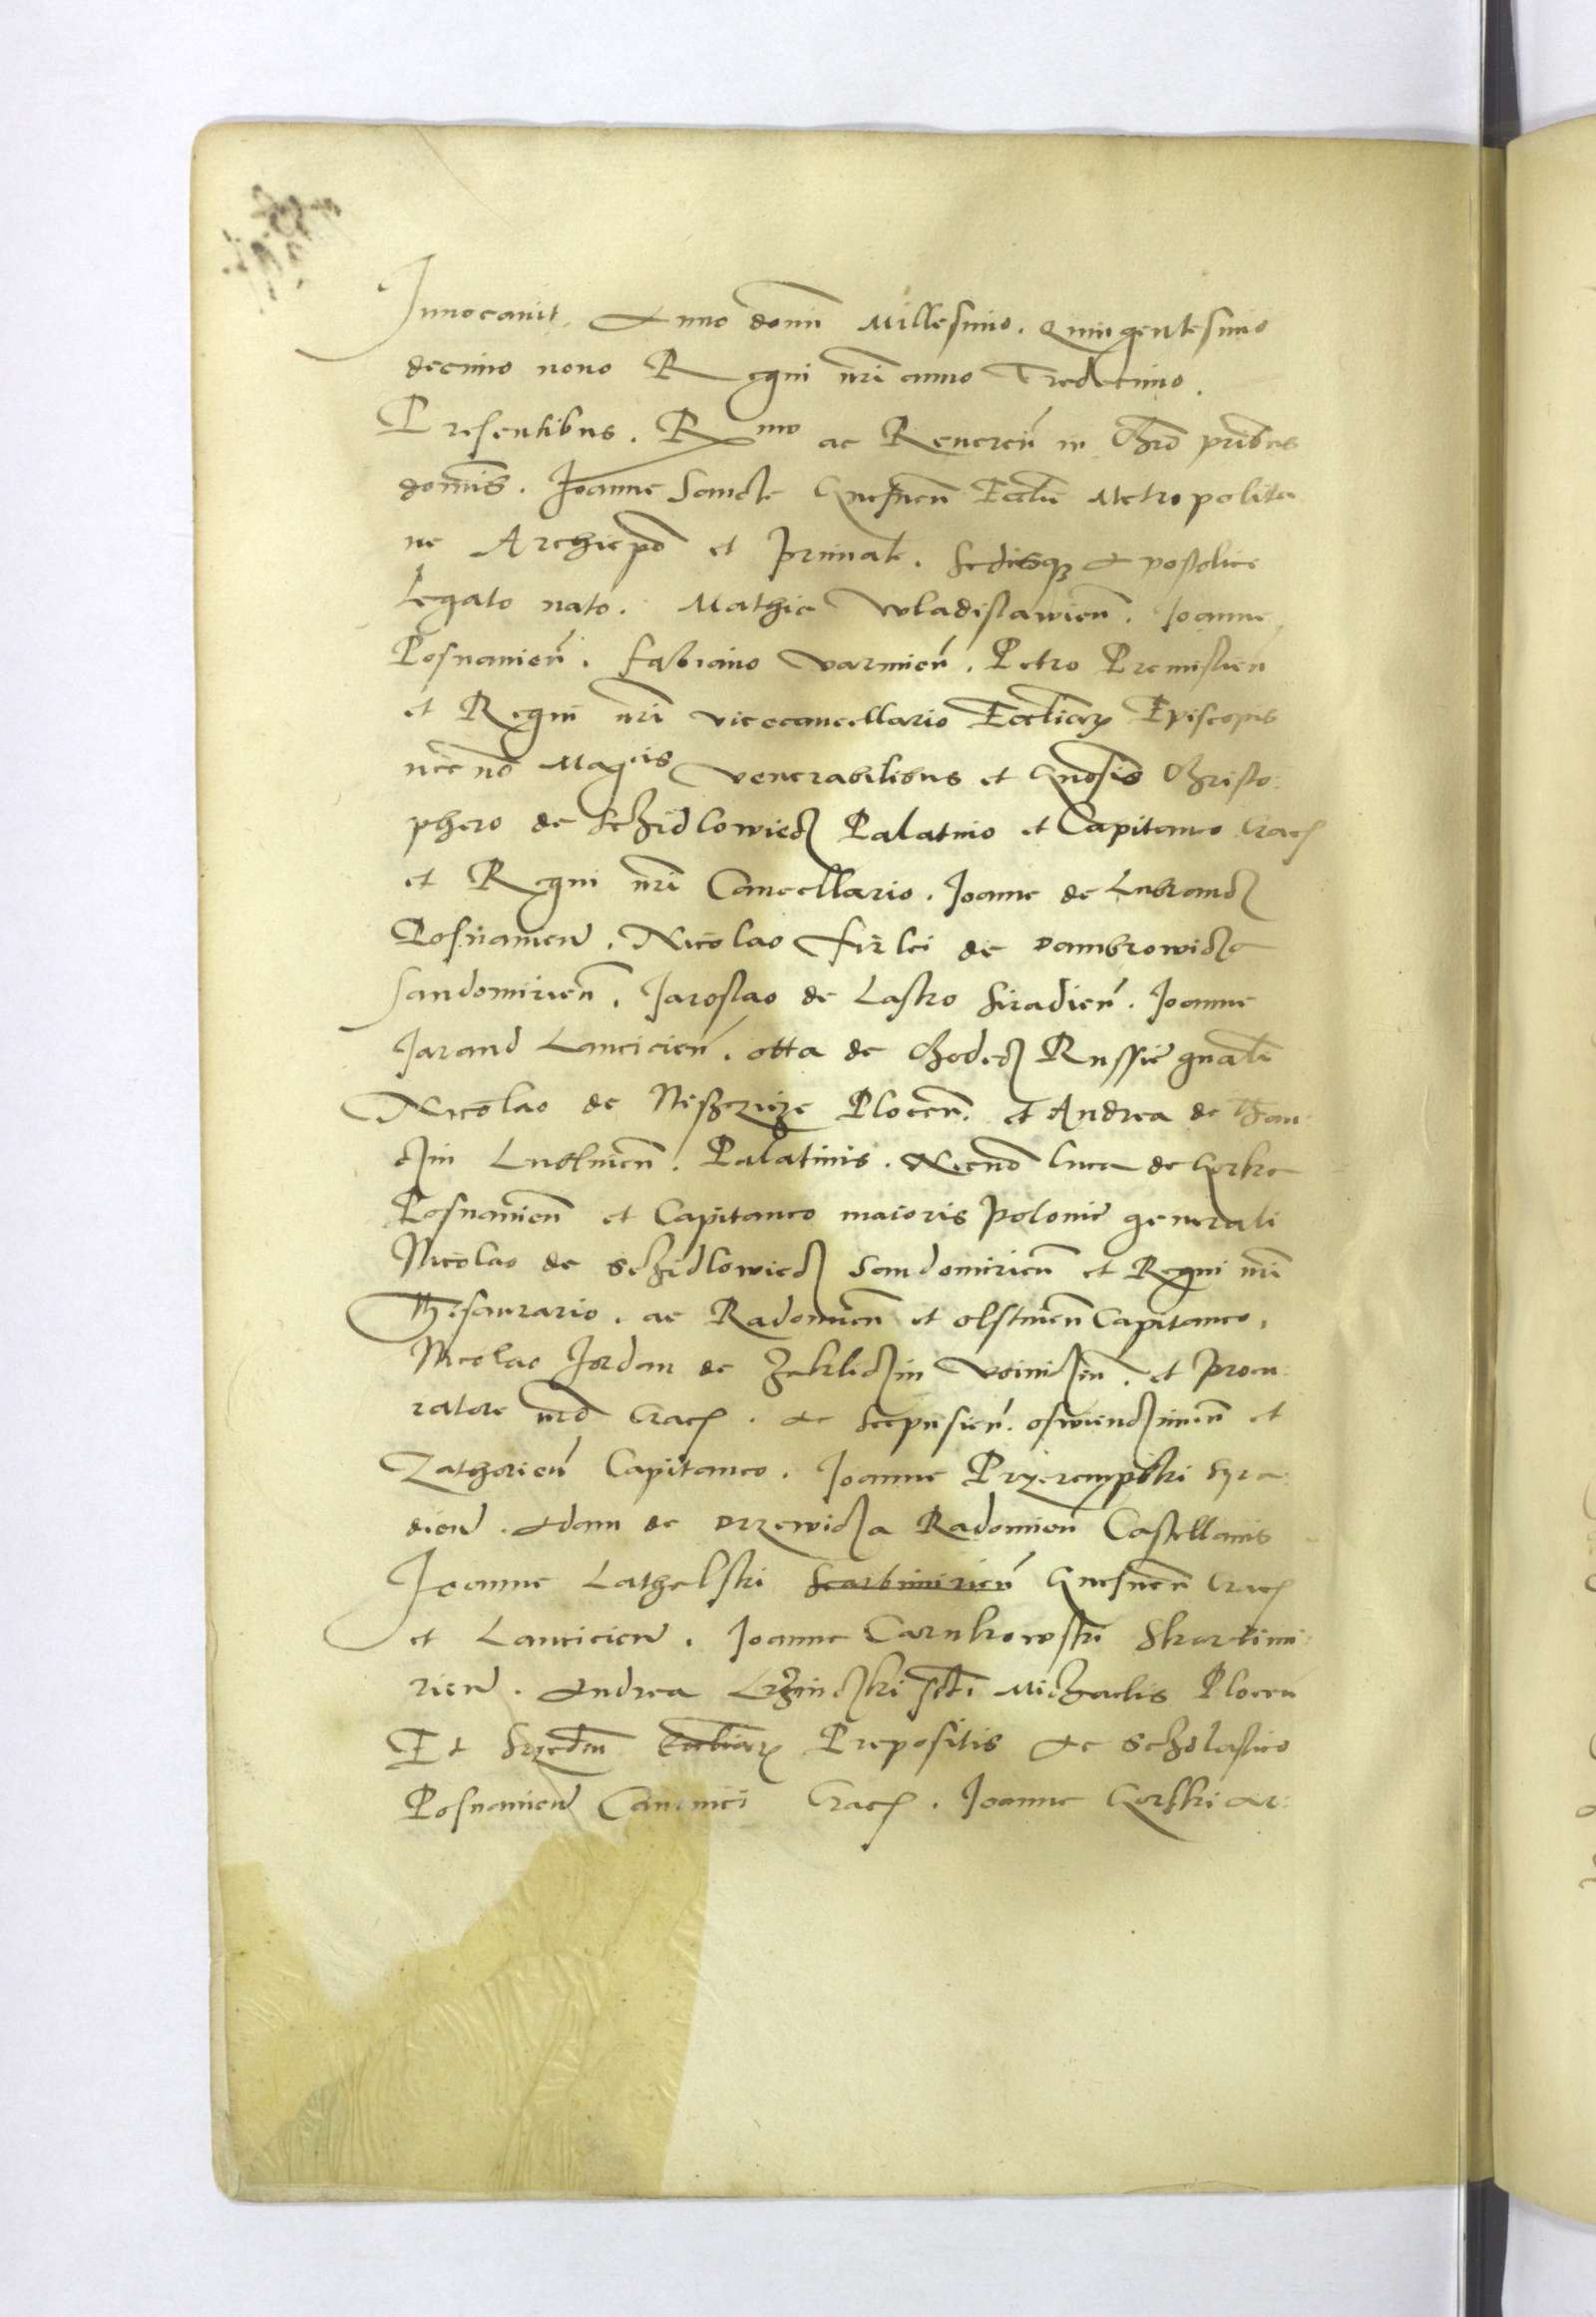 Innocauit. Anno domi Millesimo. Quingentesimo
decimo nono Regni nri anno Tredecimo.
Presentibus. Rmo ac Reueren in Chro pribus
dominis. Joanne Sancte Gnesnen Eccle Metropolita
ne Archiepo et primate. Sedisque Apostolice
Legato nato. Mathia Wladislawien. Joanne
Posnanien. Fabiano Varmien. Petro Premislien
et Regni nri vicecancellario Ecclarum Episcopis
necno Magcis venerabilibus et Gnosis Christo:
phero de Schidlowiecz Palatino et Capitaneo Crac
et Regni nri Cancellario. Joanne de Lubrancz
Posnanien. Nicolao Firlei de Dambrowicza
Sandomirien. Jaroslao de Lasko Siradien. Joanne
Jarand Lancicien. otta de Chodecz Russie gnali
Nicolao de Plocen. et Andrea de Than:
czin Lublinen. Palatinis. Necno Luca de Gorka
Posnanien et Capitaneo maioris Polonie generali
Nicolao de Schidlowiecz Sandomirien et Regni nri
Thesaurario. ac Radomien et olstinen Capitaneo.
Nicolao Jordan de Zakliczin Voiniczen. et Procu:
ratore nro Crac. ac Scepusien. oswienczimen et
Zathorien Capitaneo. Joanne Przerempski Syra:
dien. Adam de Drzewicza Radomien Castellanis
Joanne Lathalski Scarbimirien Gnesnen Crac
et Lancicien. Joanne Carnkowski Skarbimi:
rien. Andrea Krziczki scti Michaelis Plocen
Et Srzeden Ecclarum Prepositis Ac Scholastico
Posnanien Canonici Crac. Joanne Gorski Ar: